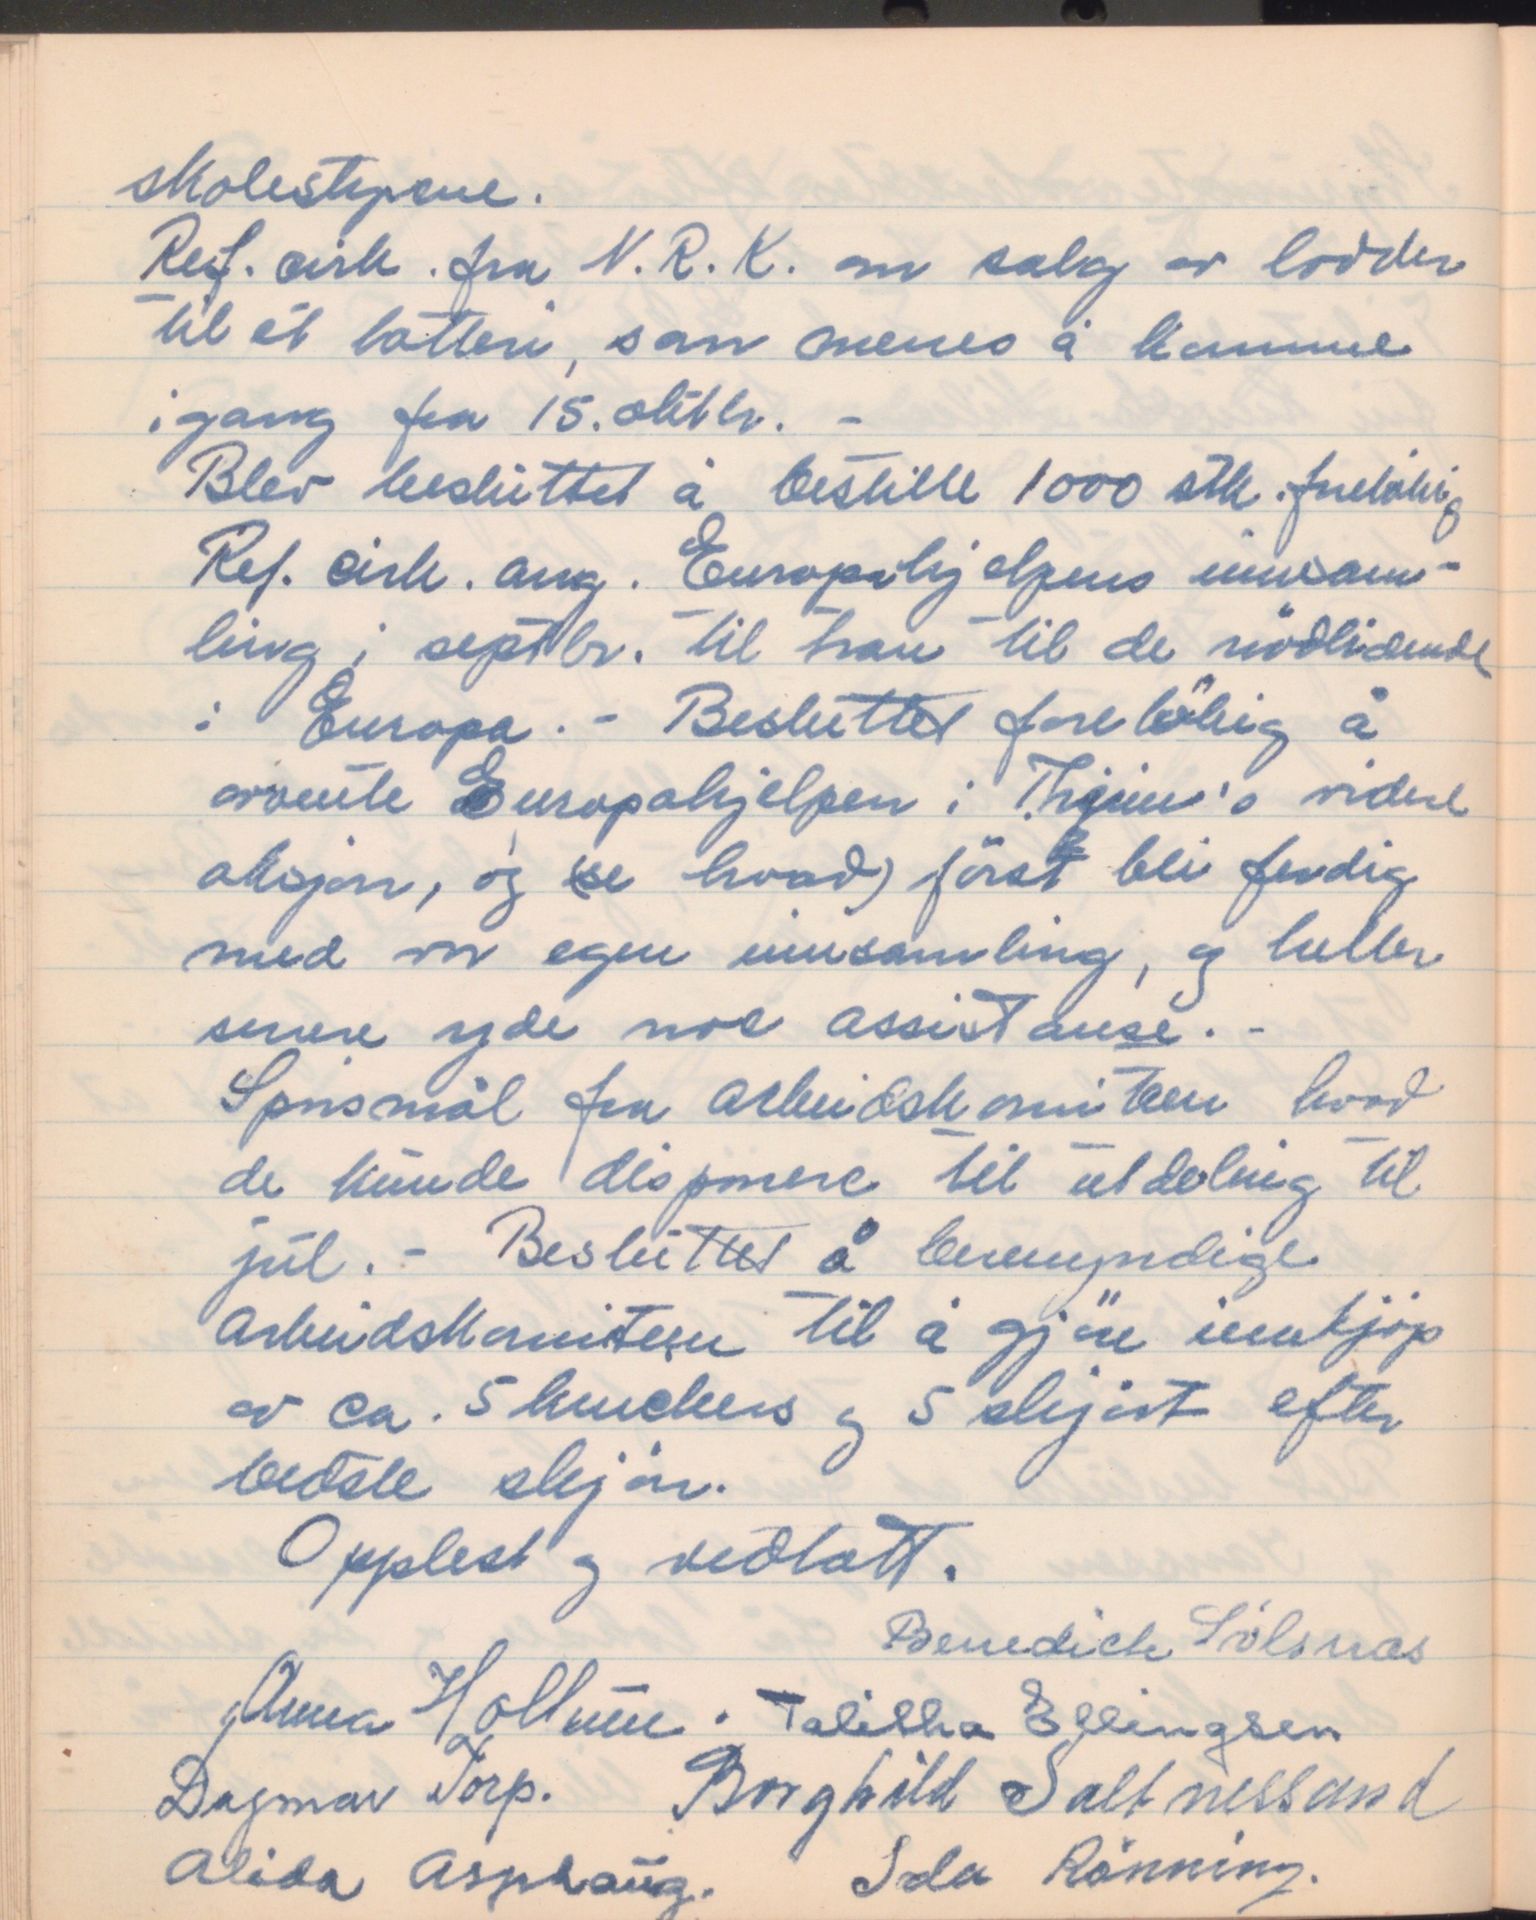 skolestyrene.
Ref. cirk. fra N.R.K. om salg av lodder
til et lotteri, som menes å komme
igang fra 15. oktbr. -
Blev besluttet å bestille 1000 stk. foreløbig
Ref. cirk. ang. Europahjelpens innsam-
ling i septbr. til tran til de nödlidende
i Europa. - Besluttet forelöbig å
avvente Europahjelpen i Thjem's videre
aksjon, og (se hvad) först bli ferdig
med vor egen innsamling, og heller
senere yde noe assistanse. -
Spörsmål fra arbeidskomiteen hvad
de kunde disponere til utdeling til
jul. - Besluttet å bemyndige
arbeidskomiteen til å gjöre innkjöp
av ca. 5 knickers og 5 skjört efter
bedste skjön.
Opplest og vedtatt.
Benedicte Sölsnæs
Anna Hollum. Talitha Ellingsen
Dagmar Torp. Borghild Saltnessand
Alida Asphaug. Ida Rönning.